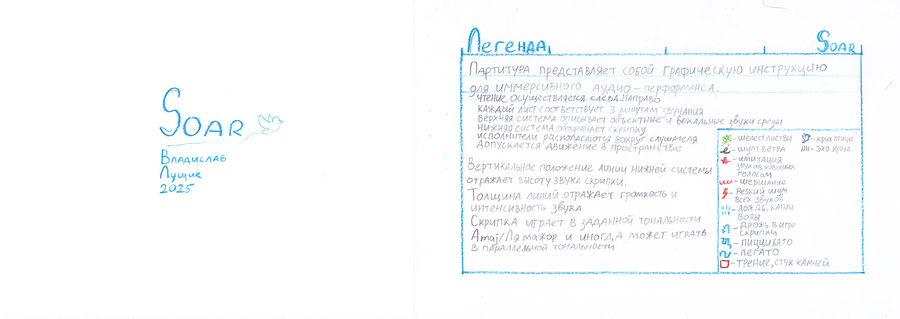 Soar
Владислав
Лущик
2025
Легенда
Soar
Партитура представляет собой графическую инструкцию
для иммерсивного аудио-перформанса.
чтение осуществляется слева направо
каждый лист соответствует 3 минутам звучания
верхняя система описывает объектные и вокальные звуки среды
нижняя система обозначает скрипку
исполнители располагаются вокруг слушателя
допускается движение в пространстве
Вертикальное положение линий нижней системы
отражает высоту звука скрипки.
Толщина линий отражает громкость и
интенсивность звука
Скрипка играет в заданной тональности
Amaj/Ля мажор и иногда может играть
в параллельной тональности
- шелест листвы
- шум ветра
- имитация
звуков
голосом
- шершание
- резкий шум
всех звуков
- дождь, капли
воды
- дрожь в игре
скрипки
- пиццикато
- легато
- трение, стук камней
- крик птицы
- эхо крика